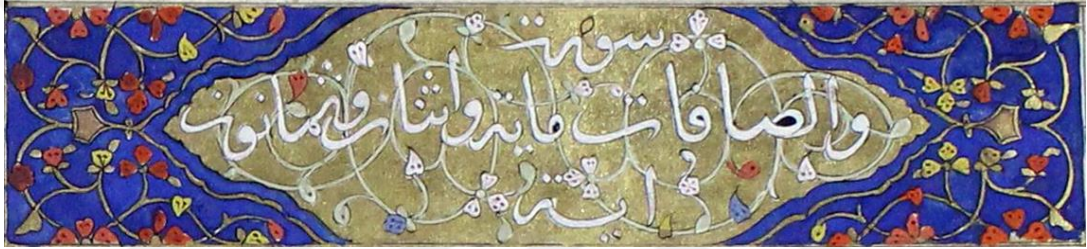 سورة
والصافات مایة واثنان وثمانون
اية